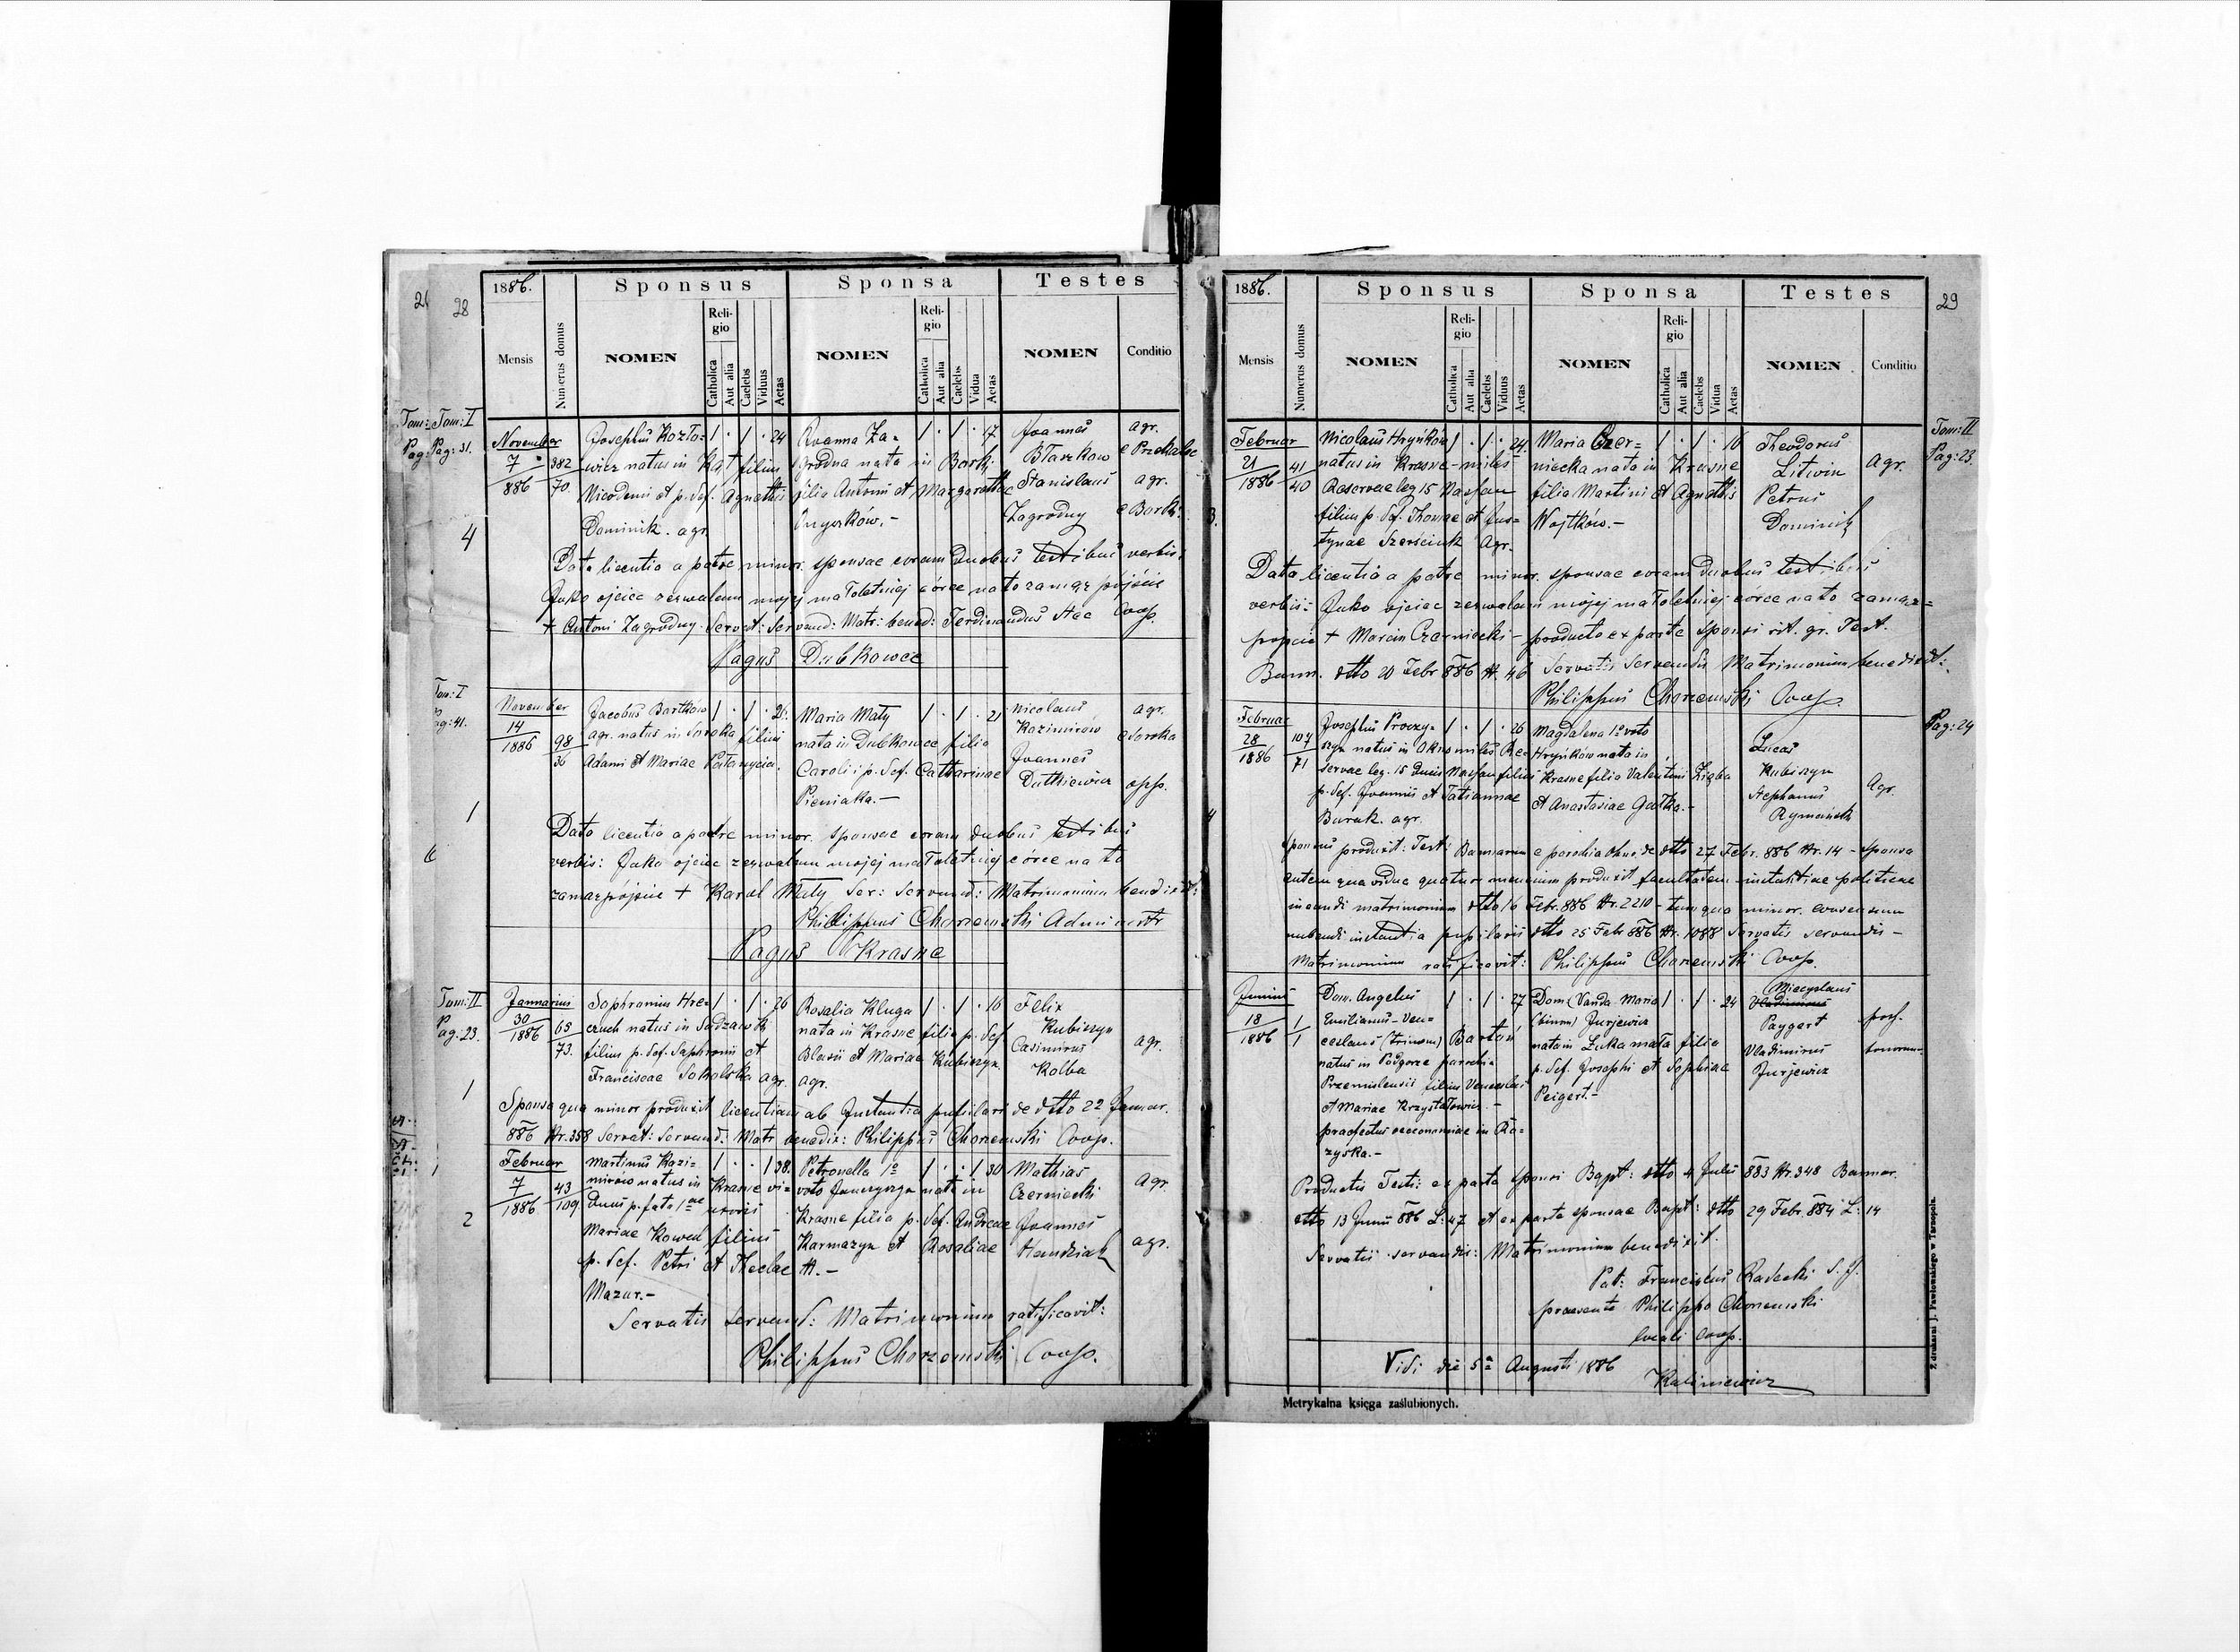 28
1886.
Sponsus
Sponsa
Testes
Mensis
Numerus domus
NOMEN
Religio
Catholica
Aut alia
Caelebs
Viduus
Aetas
NOMEN
Religio
Catholica
Aut alia
Caelebs
Vidua
Aetas
NOMEN
Conditio
Tom: I
Pag: 31.
4
November
7
886
382
70
Josephus Kozło=
wicz natus in Kąt filius
Nicodemi et p. def. Agnethis
Dominik. agr.
1 . 1 . 24
Joanna Za=
grodna nata in Borki
filia Antonii et Margarethae
1 . 1 . 17
Joannes
Błaszkow
Stanislaus
Zagrodny
agr.
agr.
e Borki
Data licentia a patre minor. sponsae coram duobus testibus verbis:
Jako ojciec zezwalam mojej małoletniej córce na to zamąż pójście
+ Antoni Zagrodny. Servat: Servand: Matr: bened: Ferdinandus Coop.
Pagus Dubkowce
Tom: I
Pag: 41.
1
November
14
1886
98
36
Jacobus Bartkow
agr. natus in Soroka filius
Adami et Mariae
1 . 1 . 26.
Maria Mały
nata in Dubkowce filia
Caroli i p. def. Catharinae
Pieniaka.-
1 . 1 . 21
Nicolaus
Kazimirów
Joannes
Dutkiewicz
agr.
e Soroka
opp.
Data licentia a patre minor. sponsae coram duobus testibus
verbis: Jako ojciec zezwalam mojej małoletniej córce na to
zamążpójście + Karol Mały Ser: Servand: Matrimonium benedixit:
Philippus Chorzemski Administr
Pagus Krasne
Tom: II
Pag: 23.
1
Januarius
30
1886
65
73.
Sophronius Hre=
czuch natus in Sadzawki
filius p. def. Sophronii et
Franciscae Sokolska agr.
1 . 1 . 26
Rosalia Kluga
nata in Krasne filia p. def
Blasii et Mariae Kubiszyn.
agr.
1 . 1 . 16
Felix
Kubiszyn
Casimirus
Kolba
agr.
Sponsa qua minor produxit licentiam ab Instantia pupilari de dtto 22 Januar.
886 Nr. 358 Servat: Servand: Matr benedix: Philippus Chorzemski Coop.
2
Februar
7
1886
43
109
Martinus Kazi=
mirow natus in Krasne vi=
duus p. fata 1ae uxoris
Mariae Kowed filius
p. def. Petri et Theclae
Mazur.-
1 . . 1 38.
Petronella 1o
voto nata in
Krasne filia p. def. Andreae
Karmazyn et Rosaliae
N.-
1 . . 1 30
Mathias
Czerniecki
Joannes
Handziak
agr.
agr.
Servatis servand: Matrimonium ratificavit:
Philippus Chorzemski Coop.
29
1886.
Sponsus
Sponsa
Testes
Mensis
Numerus domus
NOMEN
Religio
Catholica
Aut alia
Caelebs
Viduus
Aetas
NOMEN
Religio
Catholica
Aut alia
Caelebs
Vidua
Aetas
NOMEN
Conditio
Tom: II
Pag: 23.
3.
Februar
21
1886
41
40
Nicolaus Hryńków
natus in Krasne - miles
Reservae leg 15 Nassau
filius p. def. Thomae et Jus=
tynae Szerściuk Agr.
1 . 1 . 24.
Maria Czer=
niecka nata in Krasne
filia Martini et Agnethis
Wojtków.-
1 . 1 . 16
Theodorus
Litwin
Petrus
Dominik
Agr.
Data licentia a patre minor. sponsae coram duobus testibus
verbis: Jako ojciec zezwalam mojej małoletniej córce na to zamąż=
pojscie + Marcin Czerniecki - producto ex parte sponsi rit. gr. Test.
Bann. dtto 20 Febr 886 N. 46 Servatis Servandis Matrimonium benedixit:
Philippus Chorzemski Coop.
Pag: 24
4
Februar
28
1886
107
71
Josephus Proczy=
szyn natus in Okno miles Re=
servae leg. 15 Ducis Nassau filius
p. def. Joannis et Tatiannae
Burak. agr.
1 . 1 . 26
Magdalena 1o voto
Hryńków nata in
Krasne filia Valentini Zięba
et Anastasiae Gałka.-
Lucas
Kubiszyn
Stephanus
Rymarnik
Agr.
Sponsus produxit: Test: Bannorum e parochia Okno de dtto 27 Febr. 886 Nr. 14 - sponsa
autem qua vidua quatuor mensium produxit facultatem instantiae politicae
ineundi matrimonium dtto 16 Febr. 886 Nr. 2210 - tum qua minor. consensum
nubendi instantia pupilaris dtto 25 Febr 886 Nr. 1088 Servatis servandis -
Matrimonium ratificavit: Philippus Chorzemski Coop.
Junius
18
1886
1
1
Dom. Angelus
Emilianus - Ven=
ceslaus (trinom) Bartoń
natus in Podgorze parochia
Przemislensis filius Venceslai
et Mariae Krzyształowicz -
praefectus oeconomiae in Ra=
zyska.-
1 . 1 . 27
Dom. Vanda Maria
(binom) Jurjewicz
nata in Łuka mała filia
p. def. Josephi et Sophiae
Peigert.-
1 . 1 . 24
Miecyslaus
Paygert
Vladimirus
Jurjewicz
poss.
bonorum
Productis Test: ex parte sponsi Bapt: dtto 4 Julii 883 Nr. 348 Bannor.
dtto 13 Junii 886 L: 47 et ex parte sponsae Bapt: dtto 29 Febr. 884 L: 14
Servatis servandis: Matrimonium benedixit.
Pat: Franciscus Radecki S. J.
praesente Philippo Chorzemski
locali Coop.
Vidi die 5a Augusti 1886
Kaliniewicz
Metrykalna księga zaślubionych.
Z drukarni J. Pawłowskiego w Tarnopolu.